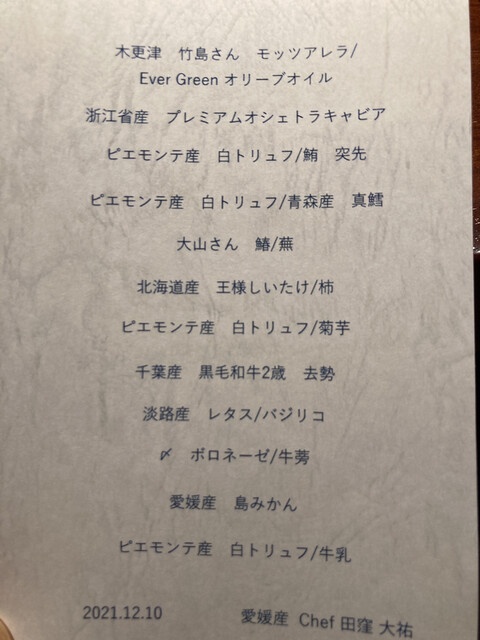 木更津　竹島さん　モッツアレラ/
Ever Green オリーブオイル
浙江省産　プレミアムオシェトラキャビア
ピエモンテ産　白トリュフ/鮪　突先
ピエモンテ産　白トリュフ/青森産　真鱈
大山さん　鰆/蕪
北海道産　王様しいたけ/柿
ピエモンテ産　白トリュフ/菊芋
千葉産　黒毛和牛2歳　去勢
淡路産　レタス/バジリコ
〆　ボロネーゼ/牛蒡
愛媛産　島みかん
ピエモンテ産　白トリュフ/牛乳
2021.12.10　愛媛産 Chef 田窪 大祐